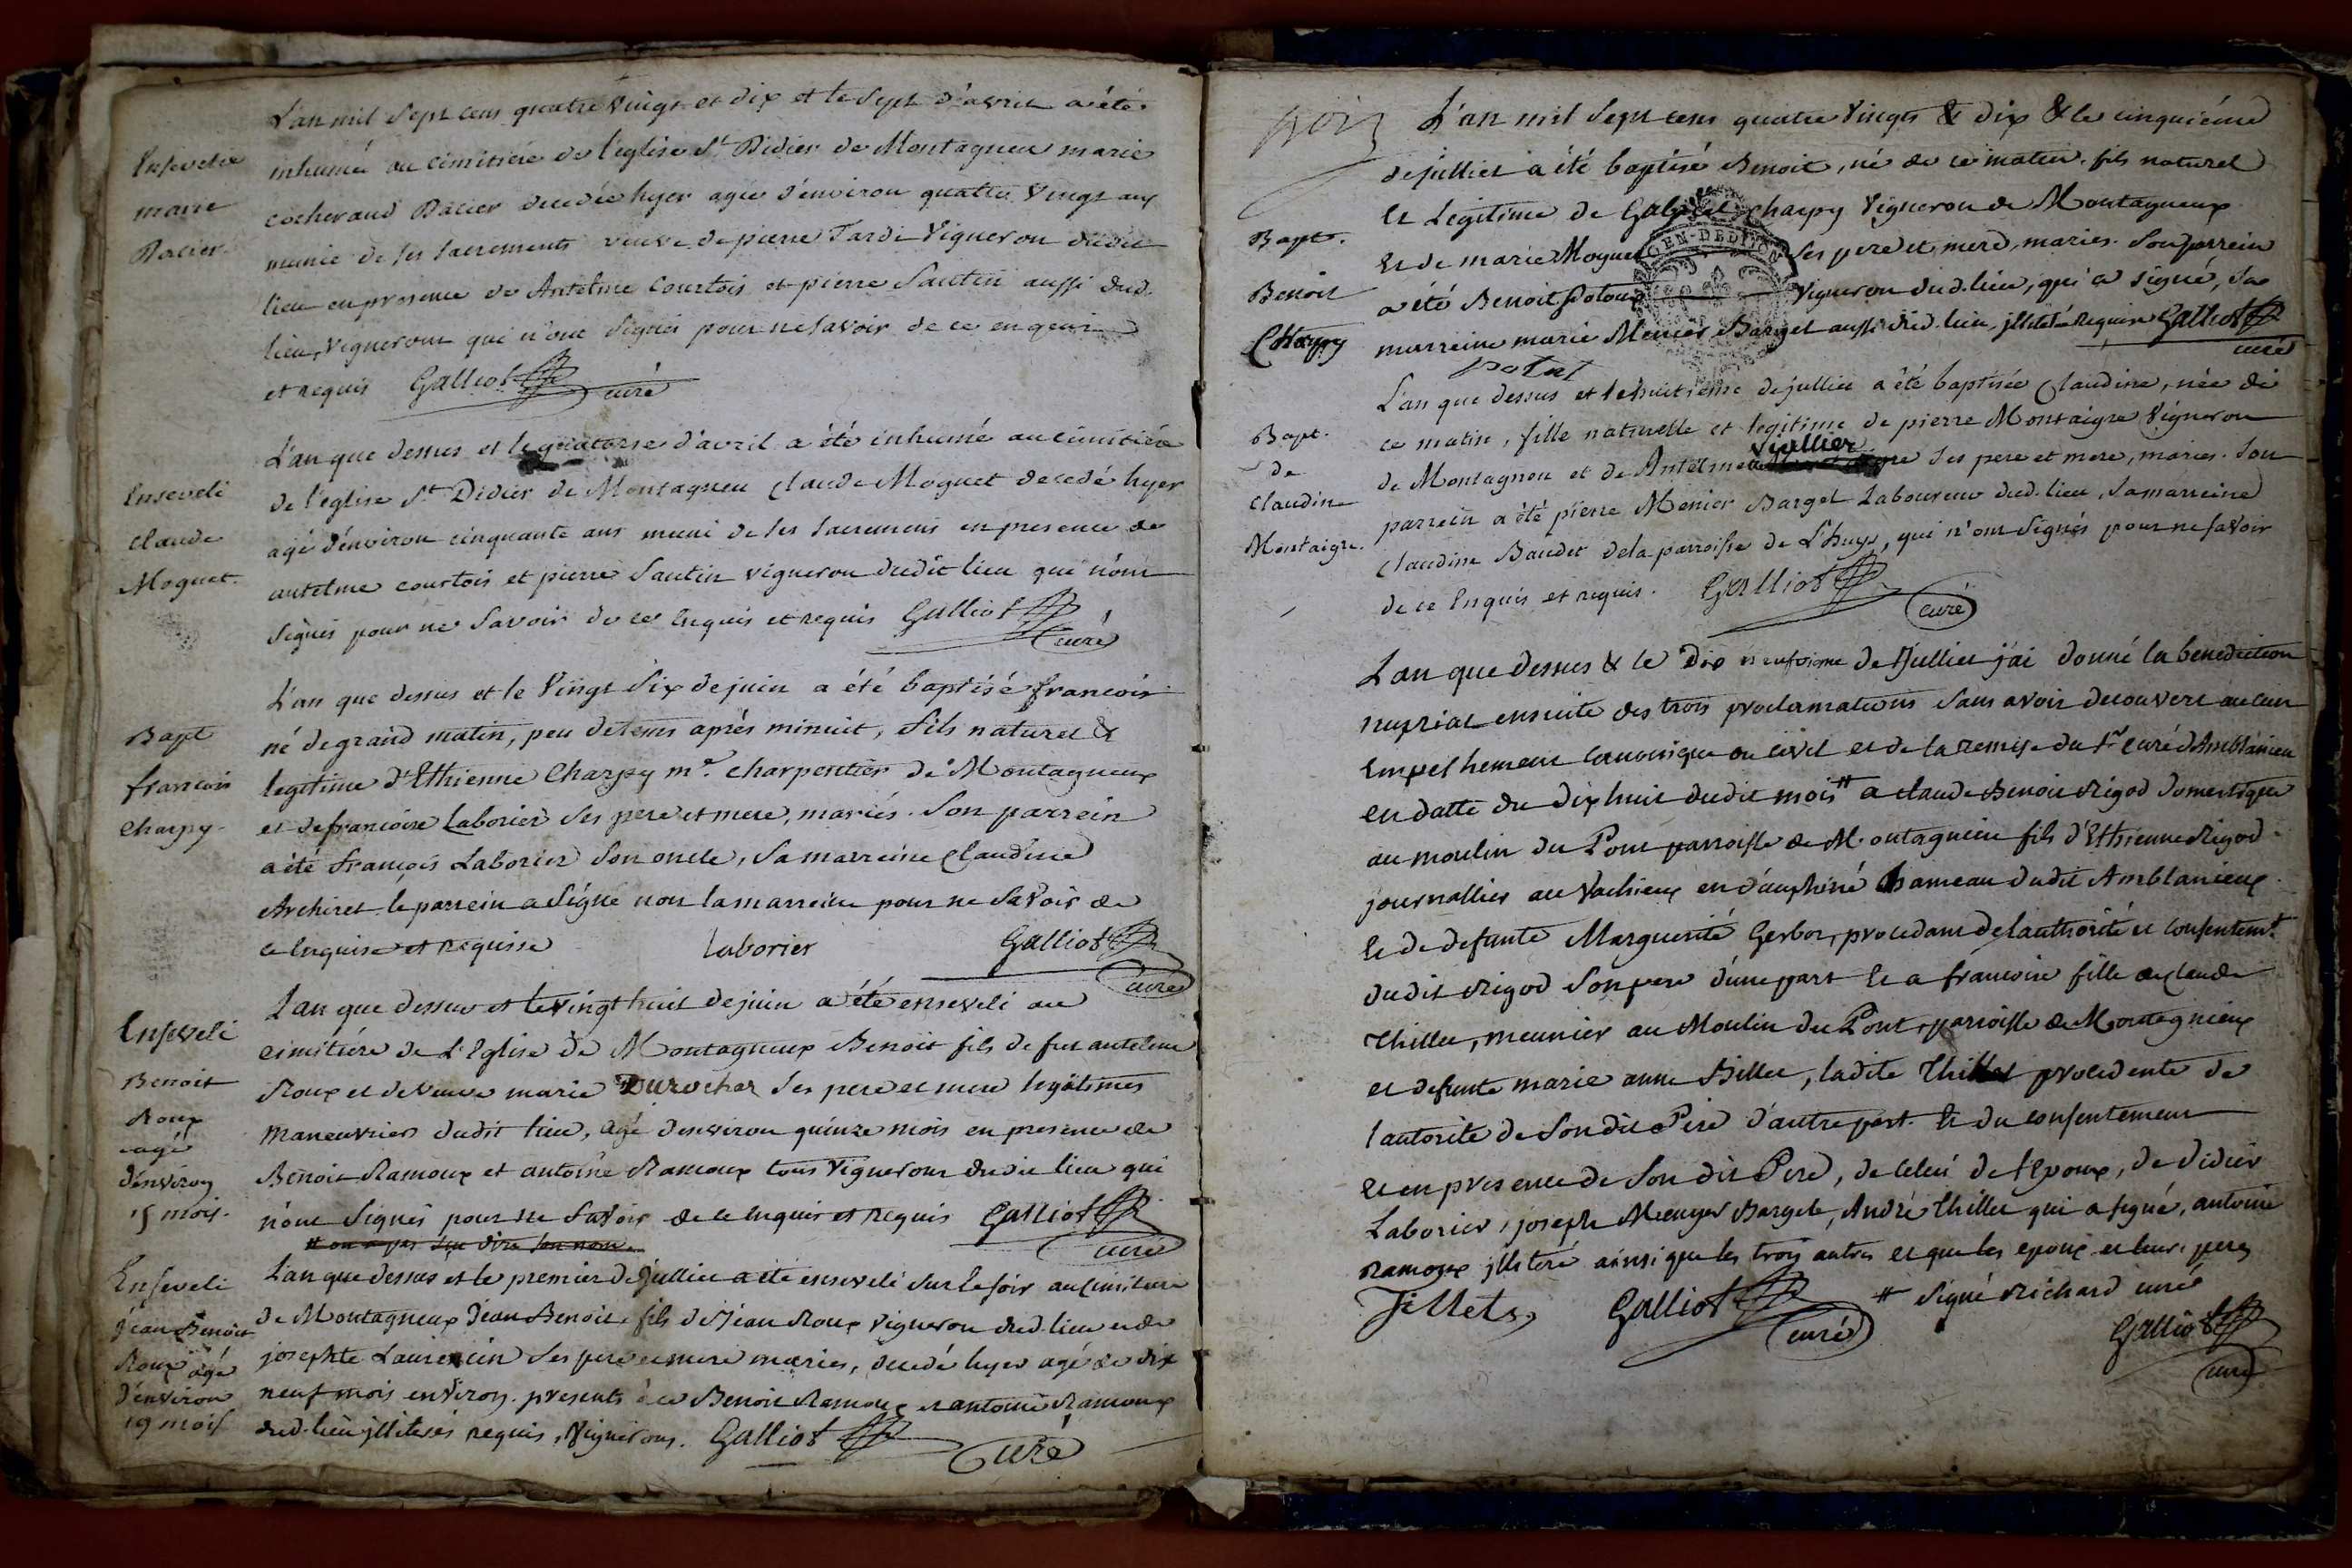 L'an mil sept cens quatre vingt et dix et le sept d'avril a été
Ensevelie
inhumée au cimitiere de l'eglise St Didier de Montagneu marie
marie
cocherand Dacier decedée hyer agée d'environ quatre vingt ans
munie de ses sacrements veuve de pierre Tardi vigneron dudit
lieu en presence de Antelme Courtois et pierre Sautin aussi dud.
lieu, vignerons qui n'ont signés pour ne savoir de ce enquis
et requis Galliot curé
L'an que dessus et le quatorse d'avril a été inhumé au cimitière
Enseveli
de l'eglise St Didier de Montagneu Claude Moguet decedé hyer
claude
agé d'environ cinquante ans muni de ses sacremens en presence de
Moguet.
antelme courtois et pierre Sautin vigneron dudit lieu qui n'ont
signés pour ne savoir de ce enquis et requis Galliot
curé
L'an que dessus et le vingt six de juin a été baptisé francois
Bapt
né de grand matin, peu detems après minuit, fils naturel &
francois
legitime d'Ethienne Charpy me. charpentier de Montagneux
Charpy.
et de francoise Laborier ses pere et mere, mariés. Son parrein
a été françois Laborier son oncle, sa marreine Claudine
Archiret le parrein a signé non la marreine pour ne savoir de
ce enquise et requisse Laborier Galliot
curé
L'an que dessus et le vingt huit de juin a été enseveli au
Enseveli
cimitière de L'Eglise de Montagneux Benoit fils de fut antelme
Benoit
Roux et de veuve marie Durochar ses pere et mere legitimes
Roux
manoeuvrier dudit lieu, agé d'environ quinze mois en presence de
agé
Benoit Ramoux et antoine Ramoux tous vignerons dudit lieu qui
d'environ
15 mois.
n'ont signés pour ne savoir de ce enquis et requis Galliot
curé
Enseveli
L'an que dessus et le premier de Julliet a été enseveli sur le soir au cimitiere
jean Benoit
de Montagneux Jean Benoit fils de Jean Roux vigneron dud. lieu et de
Roux agé
josephte Laurencin ses pere et mere mariés, decedé hyer agé de dix
d'environ
neuf mois environ. presents à ce Benoit Ramoux et antoine Ramoux
19 mois
dud. lieu jlliterés requis, vignerons. Galliot
Curé
L'an mil sept cens quatre vingts & dix & le cinquième
de julliet a été baptisé Benoit, né de ce matin. fils naturel
et Legitime de Gabriel Charpy vigneron de Montagneux
Bapt.
et de marie Moguet ses pere et mere, mariés. Son parrein
Benoit
a été Benoit vigneron dud. lieu, qui a signé, sa
Charpy
marreine marie Menier Barget aussi dud. lieu, jllitérée requise Galliot
curé
L'an que dessus et le huitieme de julliet a été baptisée Claudine, née de
Bapt.
ce matin, fille naturelle et legitime de pierre Montaigre vigneron
viallier
de
de Montagnou et de Antelmette ses pere et mere, mariés. Son
Claudine
parrein a été pierre Menier Barget Laboureur dud. lieu, sa marreine
Montaigre.
Claudine Baudet de la parroisse de L'huys, qui n'ont signés pour ne savoir
de ce enquis et requis. Galliot
curé
L'an que dessus & le dix neufvieme de Julliet j'ai donné la benediction
nuptial ensuite des trois proclamations sans avoir decouvert aucun
empechement canonique ou civil et de la remise du Sr curé d'Amblanieu
en datte du dix huit dudit mois # a claude Benoit Rigod domestique
au moulin du Pont parroisse de Montagnieu fils d'Ethienne Rigod
journallier au Vachieux en dauphiné hameau dudit Amblanieux
et de defunte Marguerite Gerbor, procedant de l'authorité et consentemt.
dudit Rigod son pere d'une part et a francoise fille de claude
Thillet, meunier au Moulin du Pont, parroisse de Montagnieux
et defunte marie anne Billet, ladite Thillet procedente de
l'autorité de son dit Pere d'autre part. et du consentement
et en presence de son dit Pere, de celui de l'Epoux, de Didier
Laborier, joseph Menyer Barget, André Thillet qui a signé, antoine
Ramoux jllitéré ainsi que les trois autres et que les epoux et leurs peres
Tillets Galliot # Signé Richard curé
curé Galliot
curé